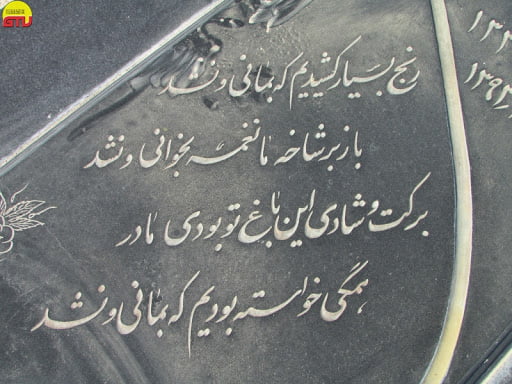 رنج بسیار کشیدیم که بمانی و نشد
باز بر شاخه ما نغمه بخوانی و نشد
برکت و شادی این باغ تو بودی مادر
همگی خواسته بودیم که بمانی و نشد
GTU